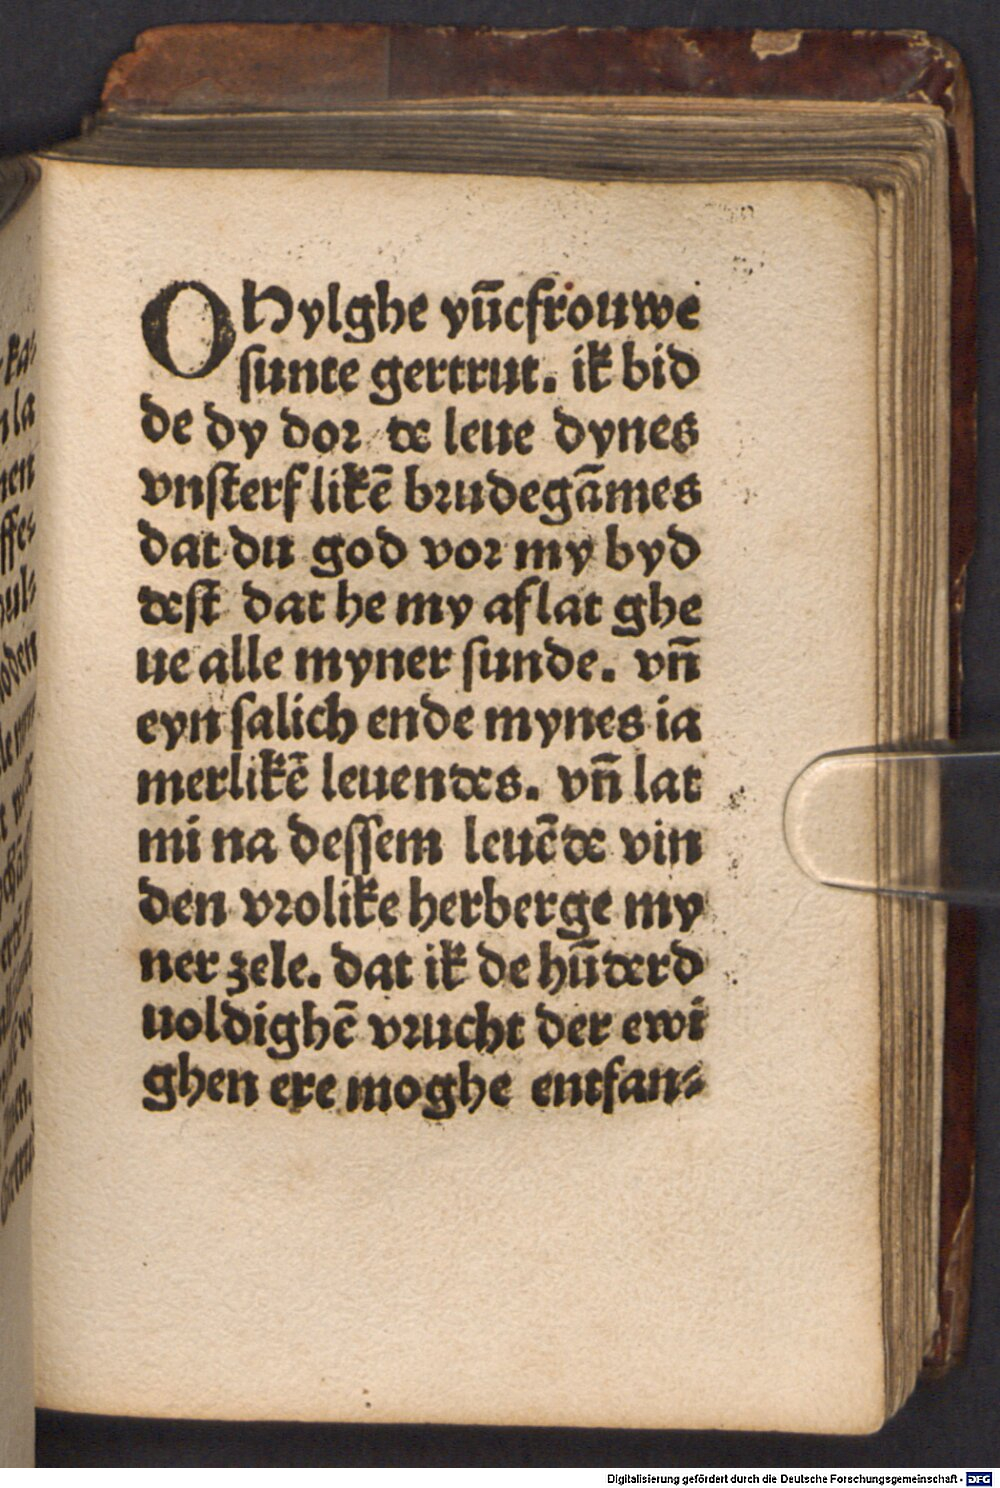 O Hylghe yūcfrouwe
sunte gertrut. ik bid
de dy dor de leue dynes
vnsterflikē brudegāmes
dat du god vor my byd
dest dat he my aflat ghe
ue alle myner sunde. vn̄
eyn salich ende mynes ia
merlikē leuendes. vn̄ lat
mi na dessem leuēde vin
den vrolike herberge my
ner zele. dat ik de hūderd
uoldighē vrucht der ewi
ghen ere moghe entfan⸗
Digitalisierung gefördert durch die Deutsche Forschungsgemeinschaft - DFG